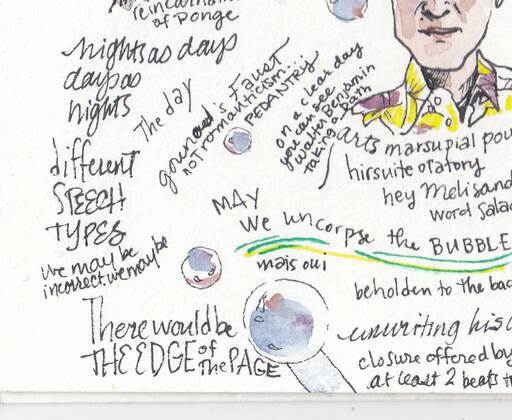 of Ponge
nights as days
days as
nights
The day
gounod's Faust
not romanticism...
PEDANTRY
on a clear day
you can see
Walter Benjamin
taking a bath
different
SPEECH
TYPES
we may be
incorrect, we maybe
arts marsupial pou
hirsuite oratory
hey Melisand
word Sala
MAY
We uncorpse the BUBBLE
mais oui
There would be
THE EDGE of the PAGE
beholden to the bac
unwriting his
closure offered by
at least 2 beats t